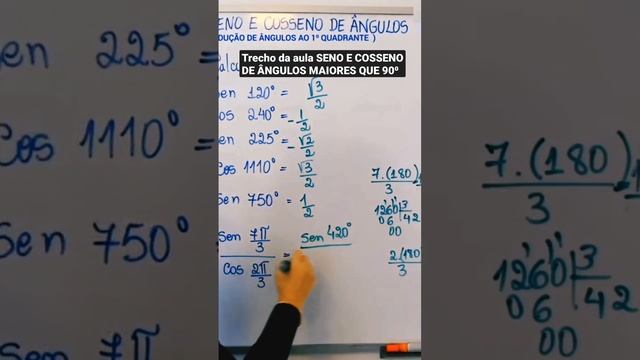 SENO E COSSENO DE ÂNGULOS
DUÇÃO DE ÂNGULOS AO 1º QUADRANTE )
Trecho da aula SENO E COSSENO
DE ÂNGULOS MAIORES QUE 90º
120° = √3/2
240° = -1/2
225° = -√2/2
Cos 1110° = √3/2
Sen 750° = 1/2
Sen 7π/3 = Sen 420°
Cos 2π/3
7.(180)
3
1260 3
06 42
00
2.(180)
3
Sen 225°
Cos 1110°
Sen 750°
Sen 7π
7.(180)
3
1260 3
06 42
00